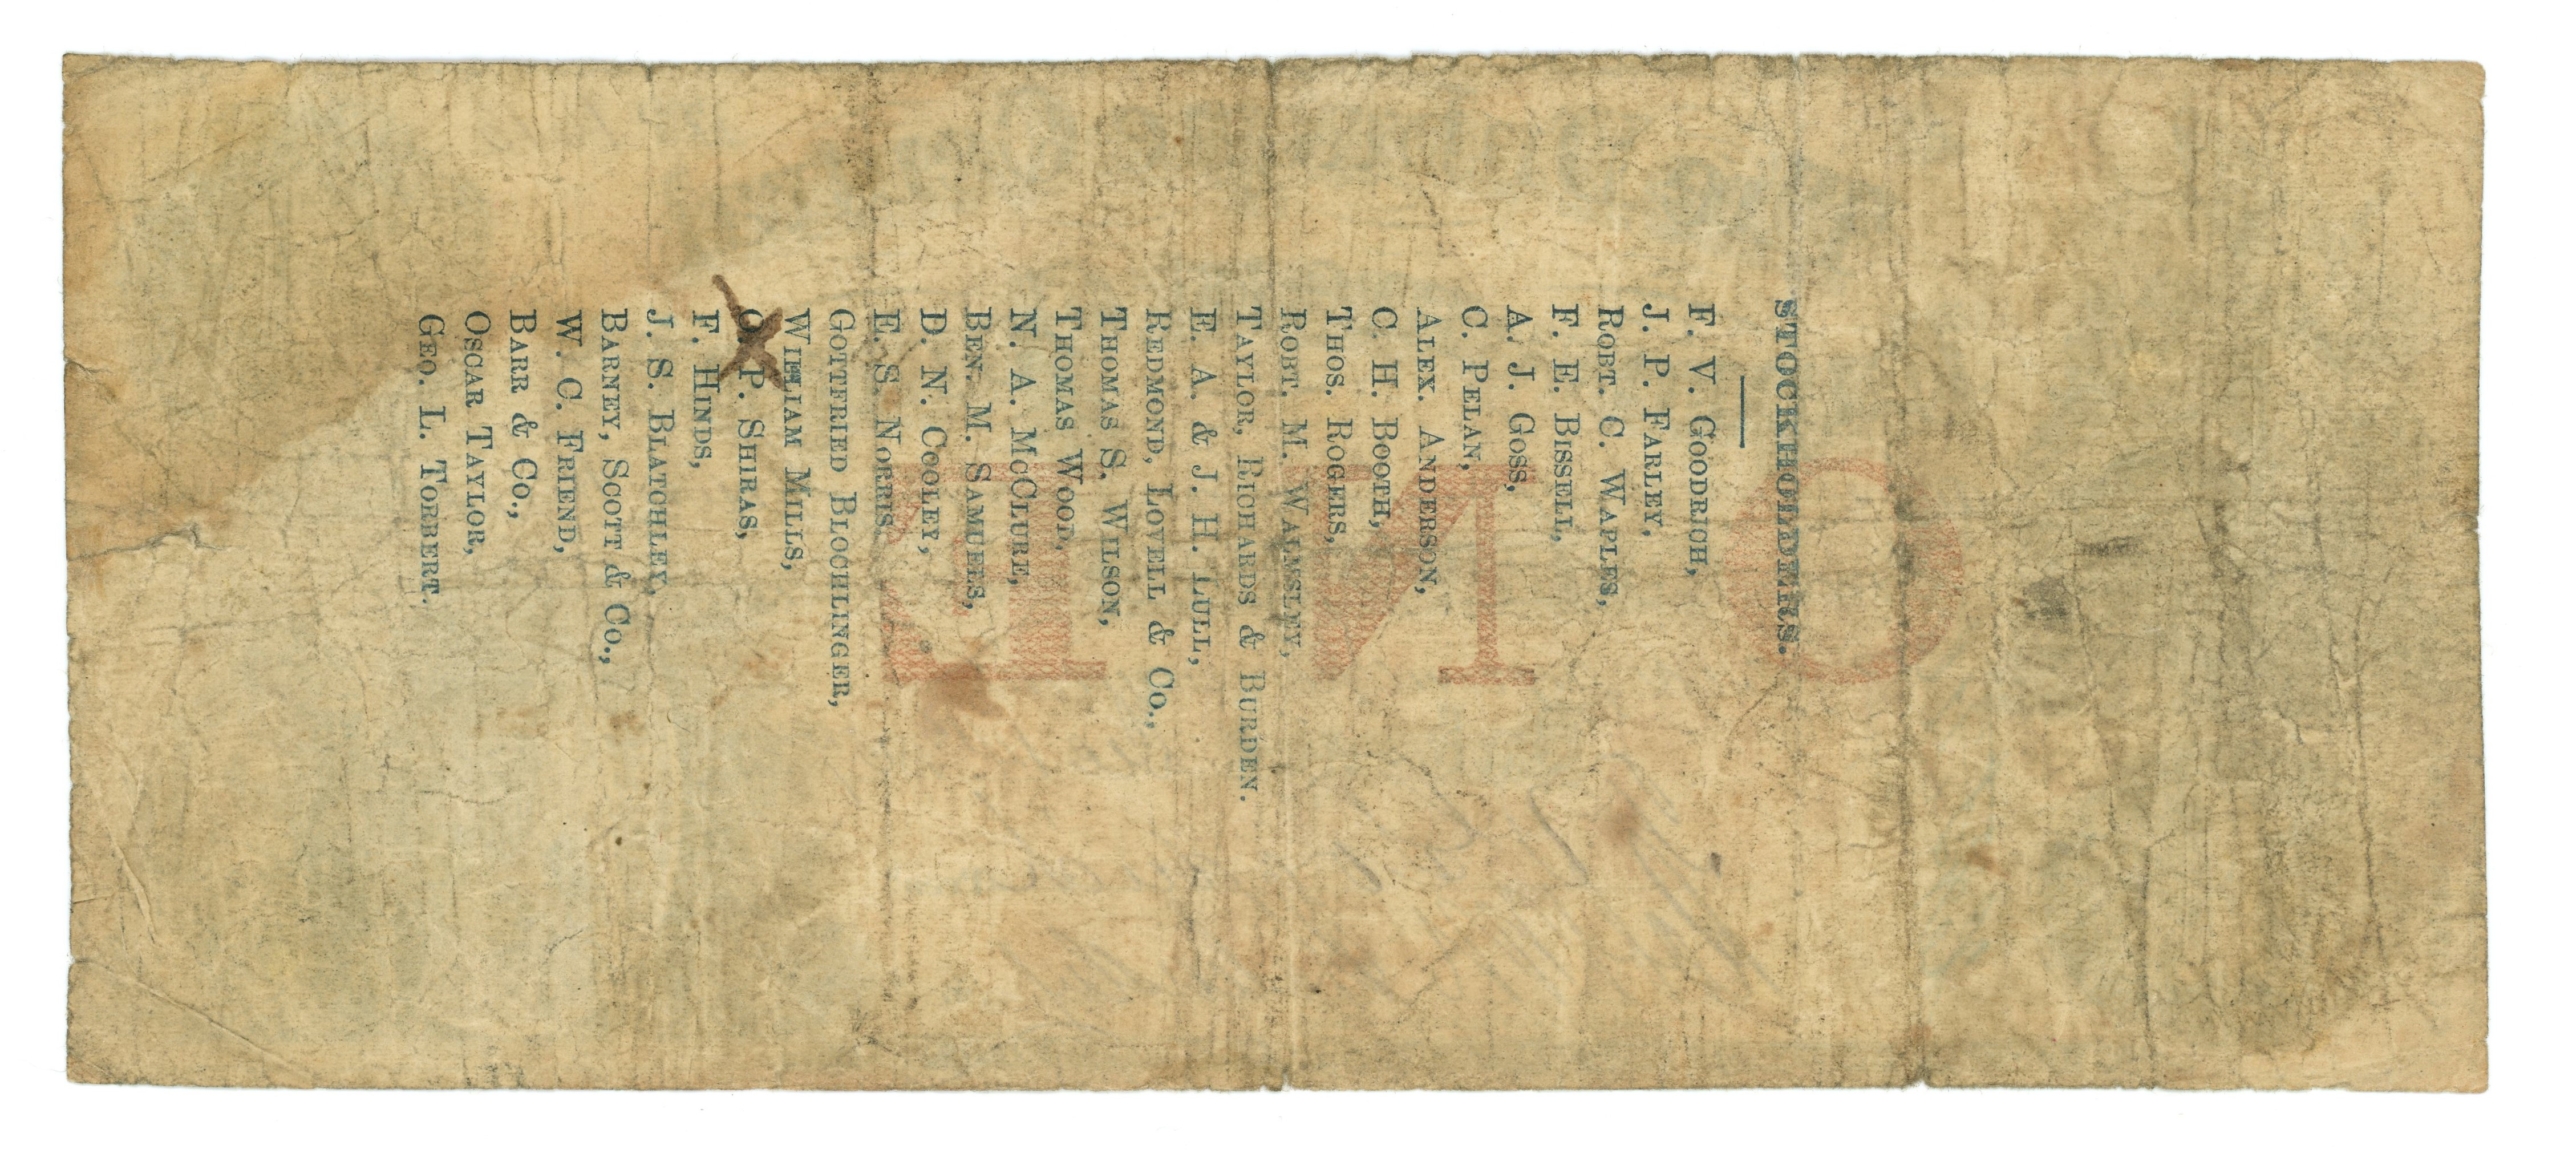 STOCKHOLDERS.
F. V. GOODRICH,
J. P. FARLEY,
ROBT. C. WAPLES,
F. E. BISSELL,
A. J. GOSS,
C. PELAN,
ALEX. ANDERSON,
C. H. BOOTH,
THOS. ROGERS,
ROBT. M. WALMSLEY,
TAYLOR, RICHARDS & BURDEN.
E. A. & J. H. LULL,
REDMOND, LOVELL & CO.,
THOMAS S. WILSON,
THOMAS WOOD,
N. A. MCCLURE,
BEN. M. SAMUELS,
D. N. COOLEY,
E. S. NORRIS,
GOTTFRIED BLOCHLINGER,
WILLIAM MILLS,
O. P. SHIRAS,
F. HINDS,
J. S. BLATCHLEY,
BARNEY, SCOTT & CO.,
W. C. FRIEND,
BARR & CO.,
OSCAR TAYLOR,
GEO. L. TORBERT.
ONE